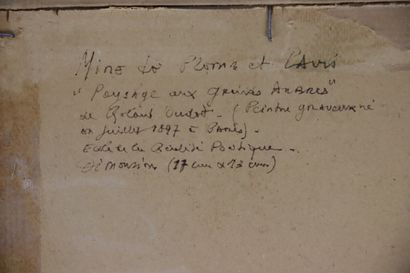 Mine de Plomb et Lavis
"Paysage aux Grands Arbres"
de Roland Oudot - (Peintre graveur né
en Juillet 1897 à Paris) -
Ecole de la Réalité Poétique -
Dimension (17 cm x 23 cm)